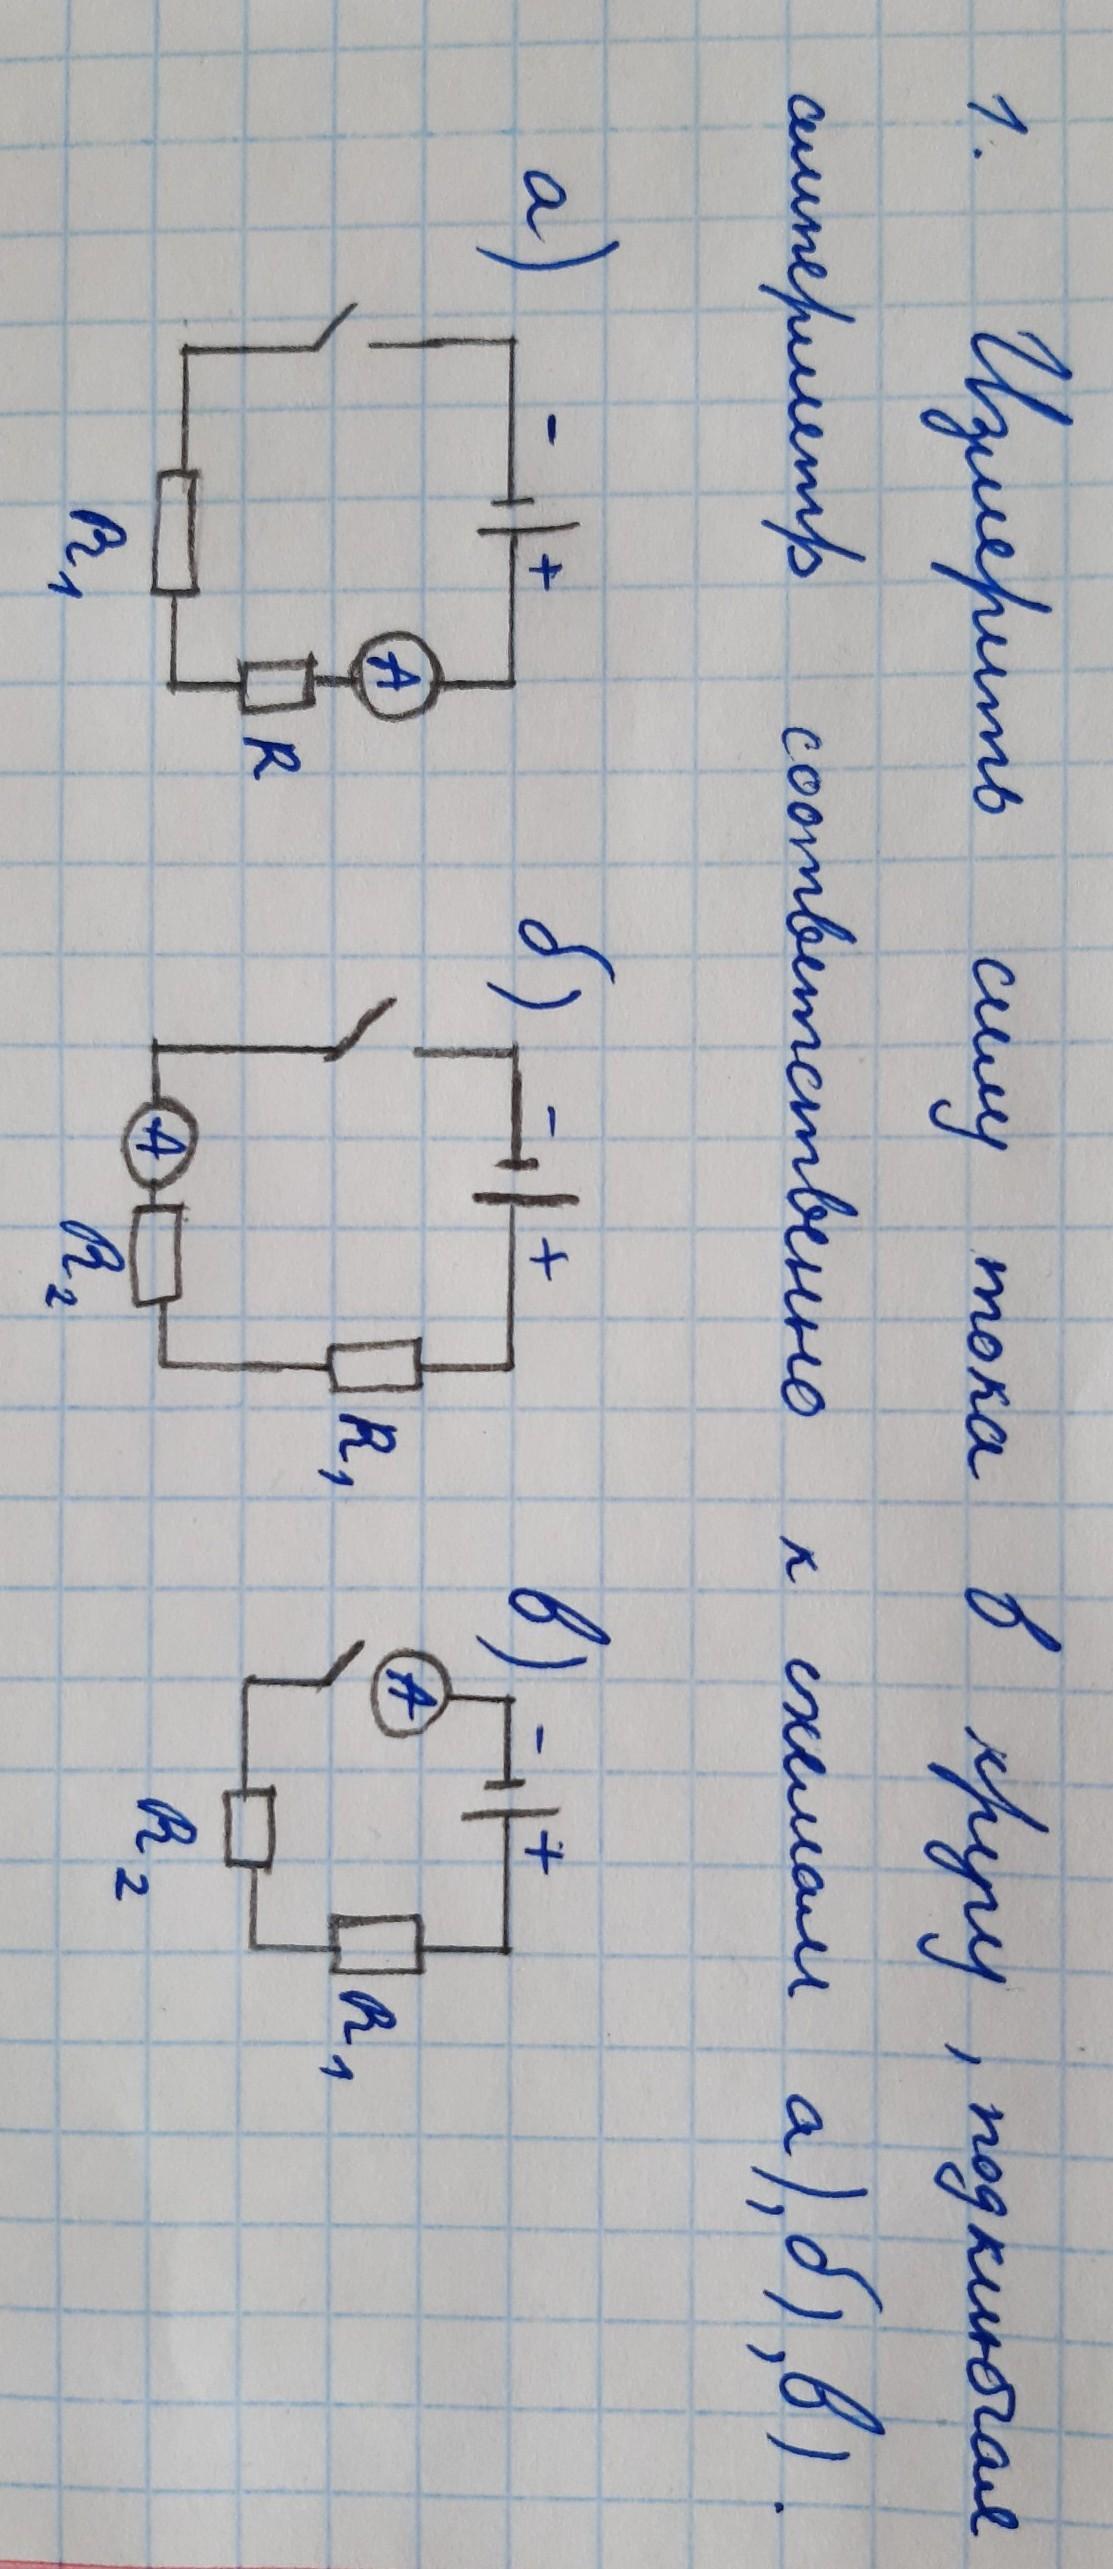 1. Измерить силу тока в кругу, подключая
амперметр соответственно к схемам а), б), в).
а) - + A R R1
б) - + R1 A R2
в) - + A R1 R2